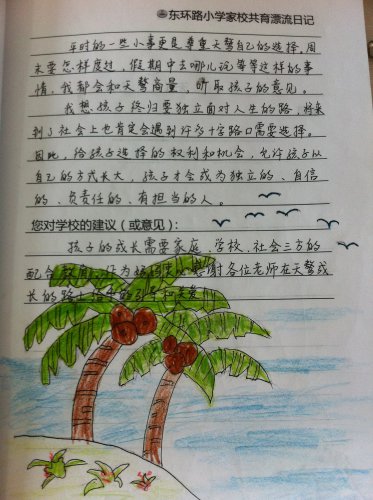 东环路小学家校共育漂流日记
平时的一些小事更是尊重天骜自己的选择,周
末要怎样度过,假期中去哪儿玩等等这样的事
情,我都会和天骜商量,听取孩子的意见。
我想孩子终归要独立面对人生的路,将来
到了社会上也肯定会遇到许多十字路口需要选择。
因此,给孩子选择的权利和机会,允许孩子以
自己的方式长大,孩子才会成为独立的、自信
的、负责任的、有担当的人。
您对学校的建议(或意见):
孩子的成长需要家庭、学校、社会三方的
配合教育,作为妈妈衷心感谢各位老师在天骜成
长的路上给予的引导和关爱!!!